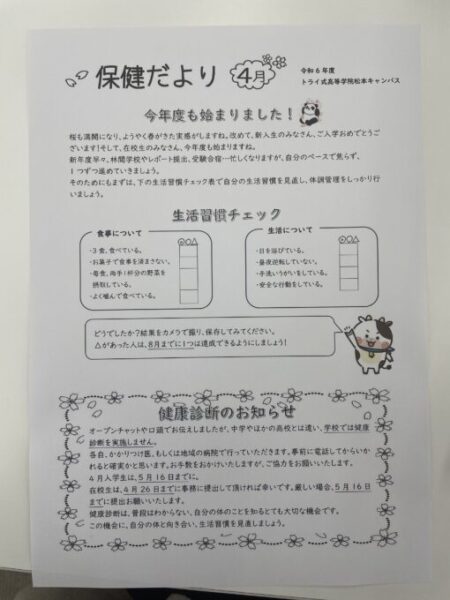 保健だより
4月
令和6年度
トライ式高等学院松本キャンパス
今年度も始まりました！
桜も満開になり、ようやく春がきた実感がしますね。改めて、新入生のみなさん、ご入学おめでとうご
ざいます!そして、在校生のみなさん、今年度も始まりますね。
新年度早々、林間学校やレポート提出、受験合宿…忙しくなりますが、自分のペースで焦らず、
1つずつ進めていきましょう。
そのためにもまずは、下の生活習慣チェック表で自分の生活習慣を見直し、体調管理をしっかり行
いましょう。
生活習慣チェック
食事について
◎○△
・3食、食べている。
・お菓子で食事を済まさない。
・毎食、両手1杯分の野菜を
摂取している。
・よく噛んで食べている。
生活について
◎○△
・日を浴びている。
・昼夜逆転していない。
・手洗いうがいをしている。
・安全な行動をしている。
どうでしたか?結果をカメラで撮り、保存してみてください。
△があった人は、8月までに1つは達成できるようにしましょう!
健康診断のお知らせ
オープンチャットや口頭でお伝えしましたが、中学やほかの高校とは違い、学校では健康
診断を実施しません。
各自、かかりつけ医、もしくは地域の病院で行っていただきます。事前に電話してからいか
れると確実かと思います。お手数をおかけいたしますが、ご協力をお願いいたします。
4月入学生は、5月16日までに。
在校生は、4月26日までに事務に提出して頂ければ幸いです。厳しい場合、5月16日
までに提出お願いいたします。
健康診断は、普段はわからない、自分の体のことを知るとても大切な機会です。
この機会に、自分の体と向き合い、生活習慣を見直しましょう。